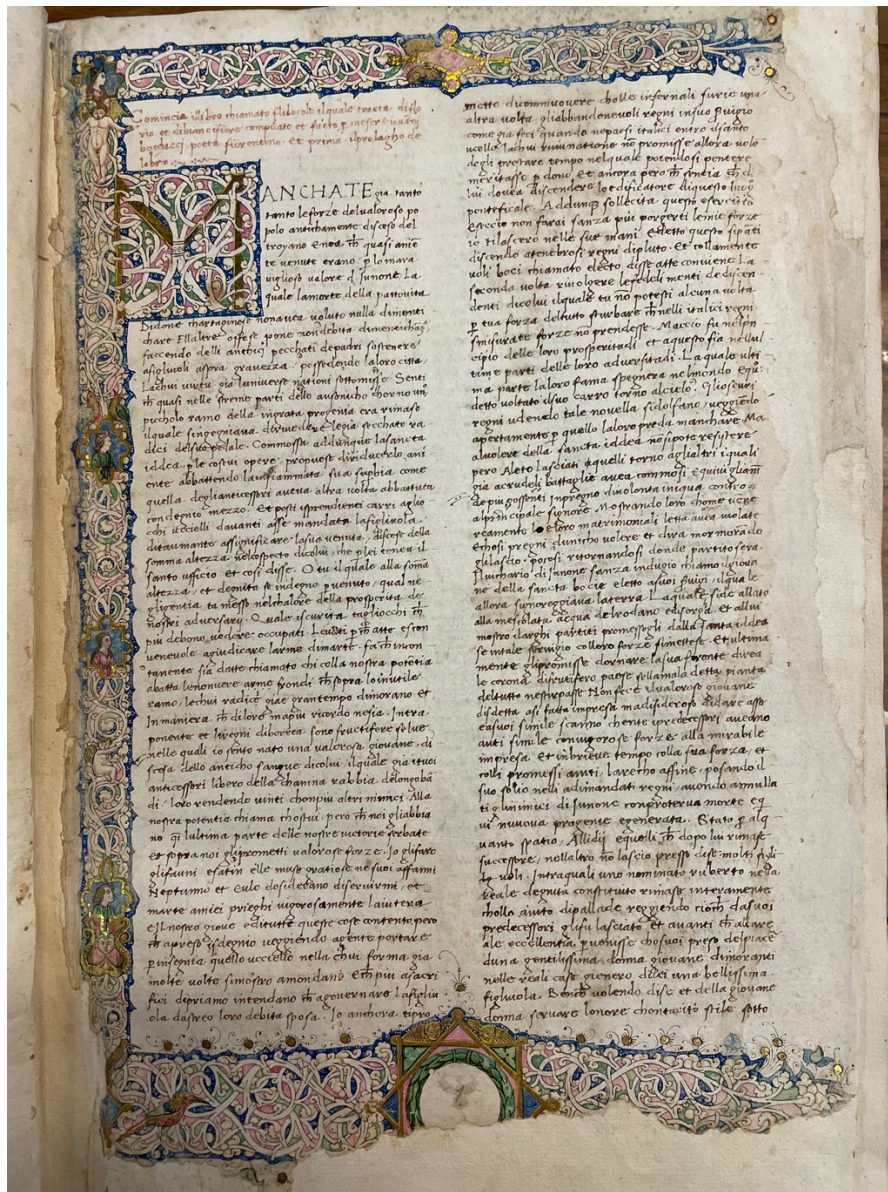 Comincia illibro chiamato filocolo ilquale tracta di flo
rio et dibiancifiore compilato et facto p messer iouani
bochacci poeta fiorentino. Et prima ilprolagho de
libro
MANCHATE gia tanto
tanto leforze delualoroso po
polo antichamente disceso del
troyano Enea ch quasi anie
te venute erano p lo mara
viglioso valore d Junone La
quale lamorte della pattovita
Didone chartaginese nonavea voluto nulla dimenti
chare Ellaltre offese pone non debita
faccendo delli antichi pecchati depadri sostenere
afigliuoli aspra gravezza possedendo laloro citta
Lachui virtu gia luniverse nationi sottomisse Senti
ch quasi nelle streme parti dello ausonicho chorno un
picholo ramo della ingrata progenia era rimaso
ilquale singegniava dirinvedere legia secchate ra
dici delsuo pedale. Commossa addunque lasancta
iddea p le costui opere propuose diriducerlo ani
ente abbattendo lainfiammata sua supbia come
quella degliantícessori aveva altra volta abbattuta
condegnio mezzo. Et posti isprendienti carri aglio
chi uccielli davanti asse mandata lafigliuola
ditaumante assignificare lasua venuta discese della
somma altezza nelcospecto dicolui che p lei teneu il
santo ufficio et cosi disse. O tu ilquale alla soma
altezza et degnita se indegno pvenuto qual ne
gligenzia ta messo nelchalere della prosperita de
nostri adversary. Quale iscurita tagliocchi ch
piu debono vedere occupati
venevole agiudicare larme dimarte
tanente sia datte chiamato chi colla nostra potetia
abatta lenonvere arme frondi ch sopra lo inutile
ramo lechui radice giae grantempo dimorano et
Inmaniera ch diloro mapiu ricordo nesia. Intra
ponente et iregni diborrea sono fructifere selve
nelle quali io sento nato una valoroso giovane di
scesa dello anticho sangue dicolui ilquale gia ituoi
anticessori libero della chanina rabbia delongoba
di loro rendendo vinti chonpiu altri nimici Alla
nostra potentia chiama chostui pero ch noi gliabbia
no qi lultima parte delle nostre victorie serbate
et sopra noi gliprometti valorose forze Io glifaro
glifauni esatiri elle muse gratiose ne suoi affanni
Neptunno et Eulo desiderano diservirmi et
marte amici prieghi vigorosamente laiutera
E il nostro giove editutte queste cose contento pero
ch apresso isdegnio veggiendo agente portare
p insegnia quello uccello nella chui forma gia
molte volte simostro amondano Ech piu asacri
fici dipriamo intendano ch agovernare lafigliu
ola dastreo loro debita sposa. Io anchora tipro
metto di commuovere cholle infernali furie una
altra volta gliabbandonevoli regni insuo servigio
come gia feci quando nepaesi italici entro
ucella lachui ruvinatione no promisse allora volo
degli prestare tempo nelquale potendosi pentere
meritasse p dono. Et ancora pero ch sentia ch di
lui dovea discendere loedificatore diquesto luogo
pontificale. Addunqe sollecita questo esercito
Etecio non farai sanza piu porgerti lemie forze
io tilascero nelle sue mani Edetto questo sipati
discendo atenebrosi regni dipluto. Et collamente
voli boci chiamato electo disse atte conviene La
seconda volta rivolgere lefedeli menti dediscen
denti dicolui ilquale tu no potesti alcuna volta
p tua forza deltutto sturbare ch nelli italici regni
smisurate forze no prendesse. Maccio fu nelpn
cipio delle loro prosperitadi et aquesto fia nellul
time parti delle loro adversitadi. La quale ulti
ma parte laloro fama spegnera nelmondo Equ
detto voltato ilsuo carro torno alcielo. Glioscuri
regni udendo tale novella sidolfano veggiedo
apertamente p quello laloro preda manchare. Ma
alvolere della sancta iddea nosipote resistere
pero Aleto lasciati equelli torno aglialtri iquali
gia acrudeli battaglie avea commossi Equivi gliani
de piu possenti inpregno divolonta iniqua contro
alprincipale signore Mostrando loro chome vere
reamente leloro matrimoniali letta avea violate
Echosi pregni dunicho volere et dira mormorado
glilascio. pocosi ritornandosi donde partitosera.
Iluichario di Junone sanza indugio chiamo ilgiova
ne della sancta bocie eletto asuoi servigi ilquale
allora signoreggiava laterra. Laquale siede allato
alla mesidata acqua delrodano edisorga. Et allui
mostro ilarghi partiti promessogli dalla santa iddea
se intale servigio colloro forze simettesse. Et ultima
mente glipromisse dornare lasua fronte direa
le corona difructifero paese sellamala detta pianta
deltutto nestirpasse Nonfece ilvaloroso giovane
disdetta asi fatta impresa madisideroso didare asse
easuoi simile scanno chente ipredecessori aveano
avuti simile convigorose forze alla mirabile
impresa. Et inbrieve tempo colla sua forza et
colli promessi aiuti larecho affine posando il
suo solio nelli adimandati regni avendo annulla
ti glinimici di Junone conproterva morte eq
vi nuvova progenie egenerata. Stato p alq
uanto spatio Allidij equelli ch dopo lui rimase
successore nellaltro no lascio presso dise molti figli
uoli. Intraquali uno nominato ruberto nella
Reale degnita constituito rimase interamente
chollo aiuto dipallade reggiendo cioch dasuoi
predecessori glifu lasciato et avanti ch allare
ale eccellentia pvenisse chosuoi preso delpiace
duna gentilissima donna giovane dimorante
nelle reali case gienero dilei una bellissima
figliuola. Bench volendo dise et della giovane
donna servare lonore chontacito stile sotto